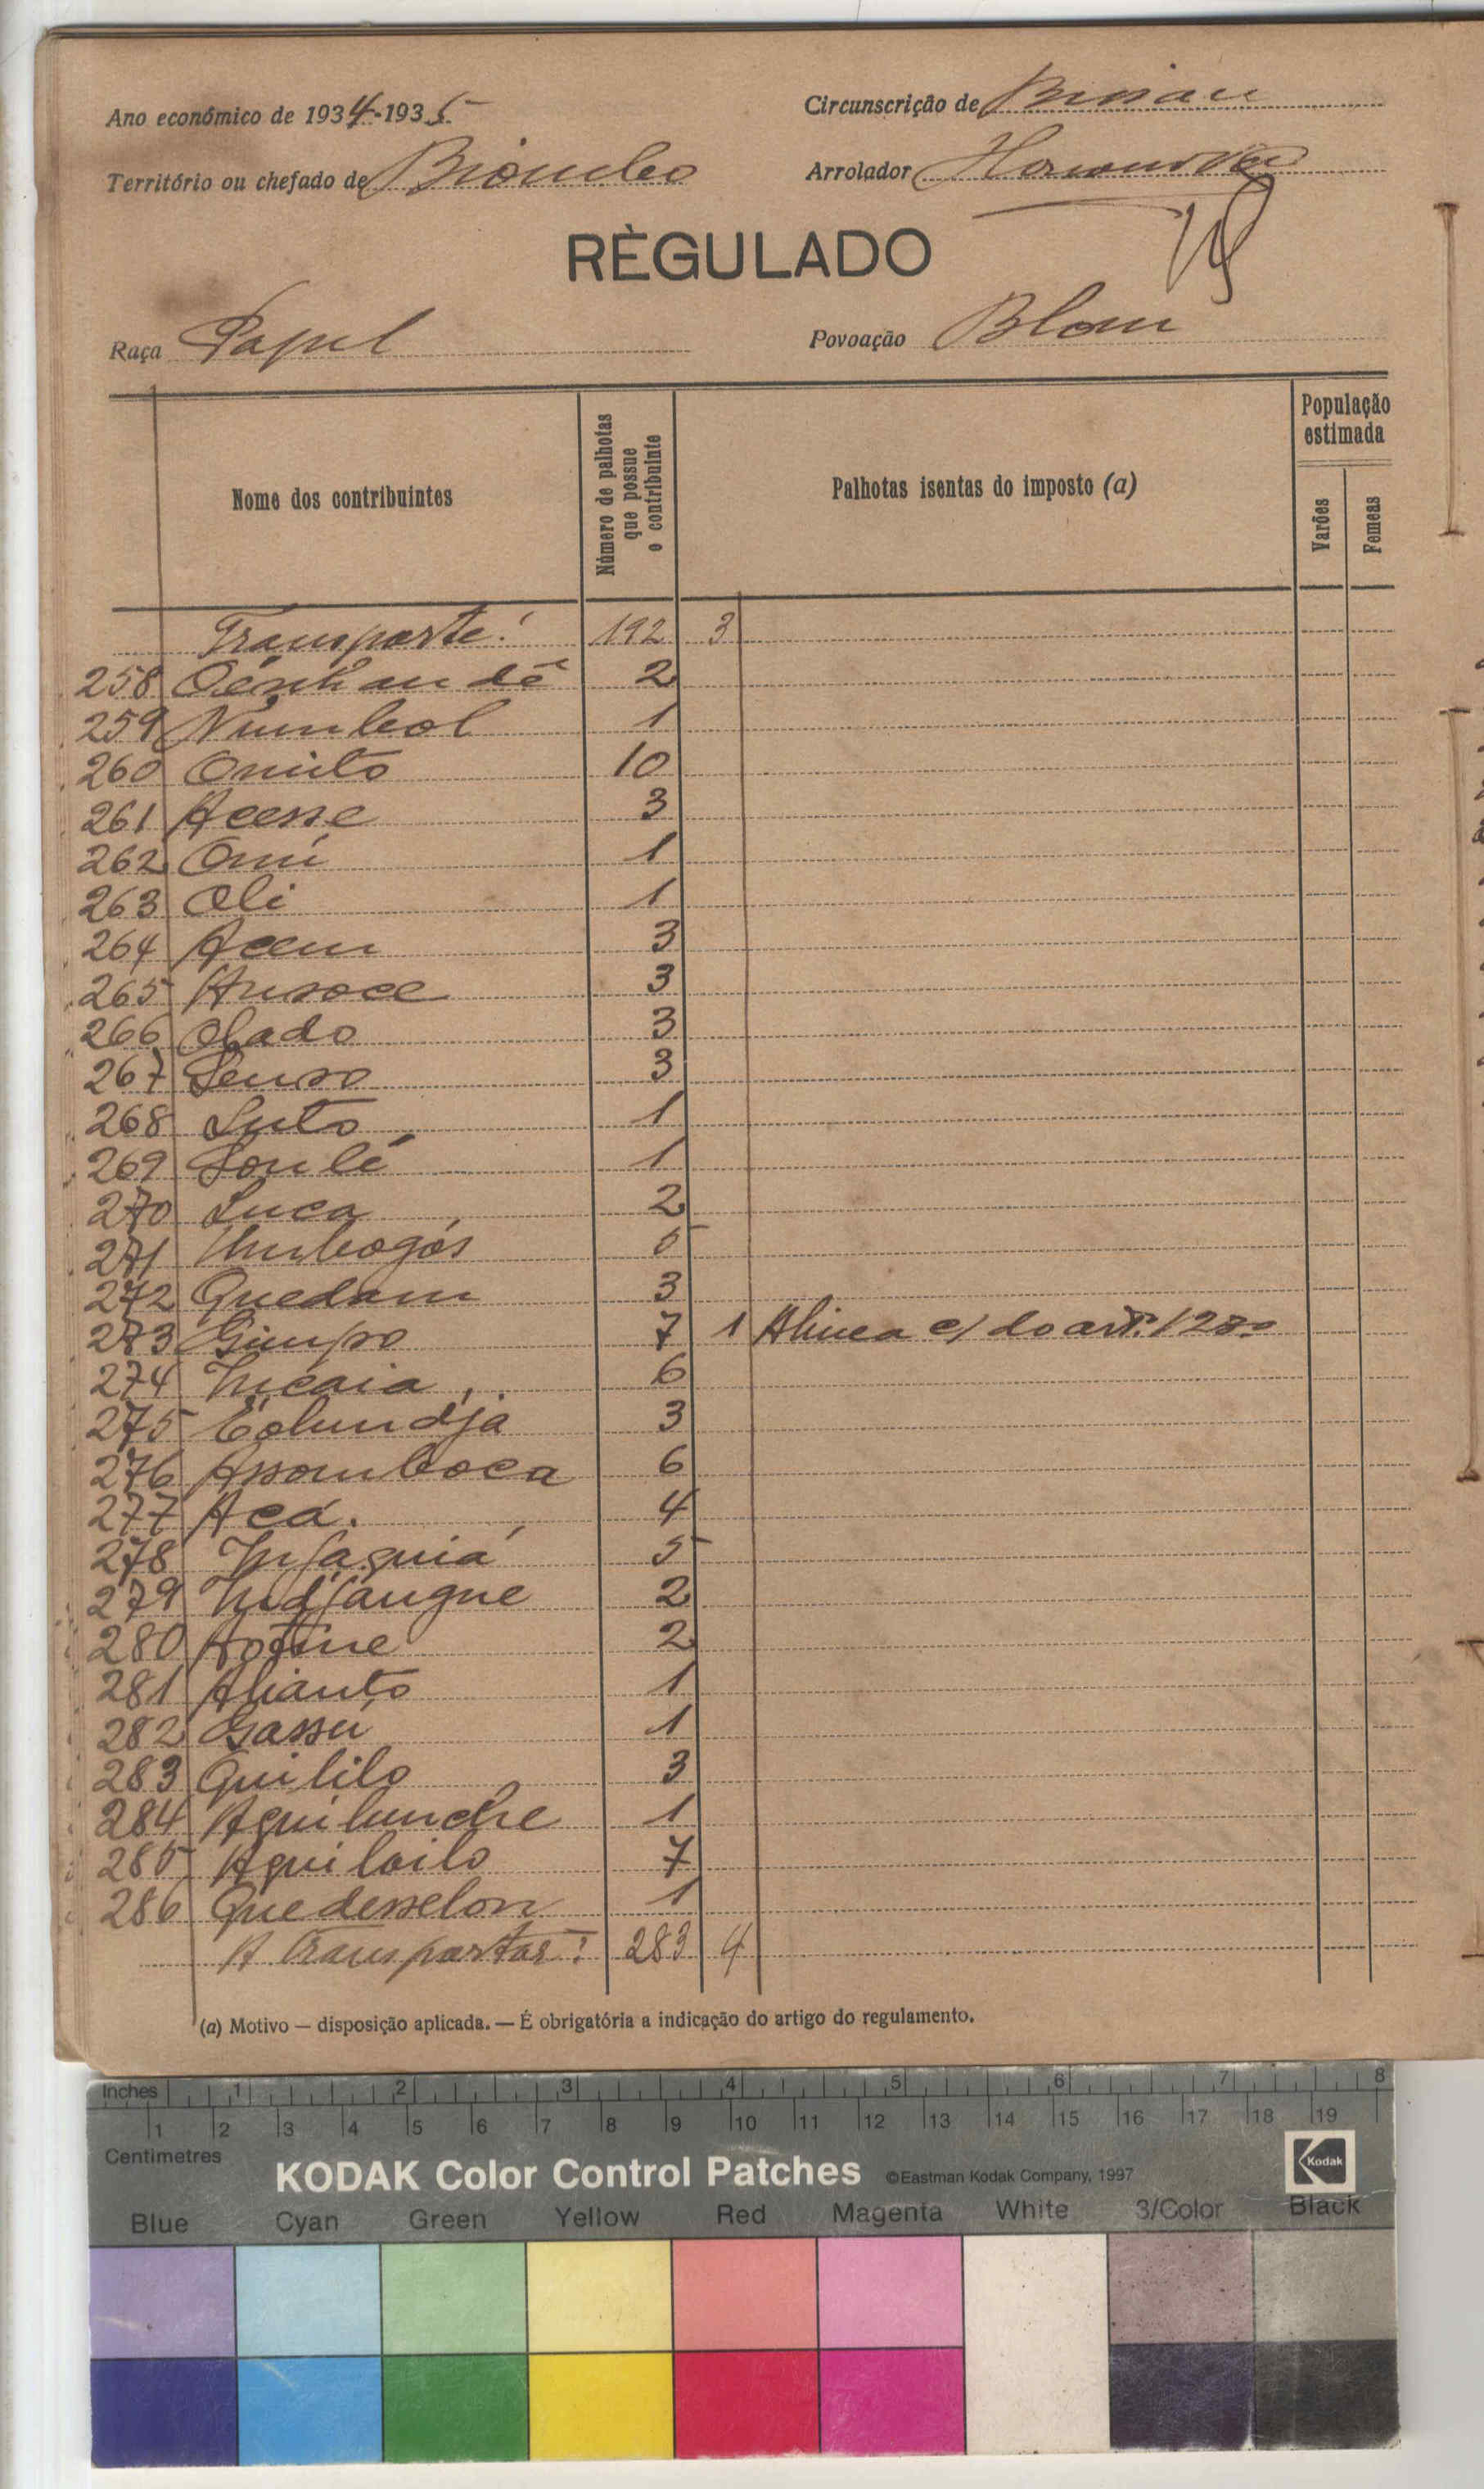 Ano económico de 1934-1935
Circunscrição de Bissau
Território ou chefado de Biombo
Arrolador
RÈGULADO
Raça Papel
Povoação Blom
Nome dos contribuintes
Número de palhotas que possue o contribuinte
Palhotas isentas do imposto (a)
População estimada
Varões
Femeas
Transporte: 192 3
258 2
259 Numbol 1
260 Omito 10
261 Acesse 3
262 Omi 1
263 Oli 1
264 Acem 3
265 3
266 Olado 3
267 3
268 Luto 1
269 1
270 Luca 2
271 Umbogós 5
272 Quedam 3
273 Gimpo 7 1 Alinea c/ do artº. 128º
274 Incaia 6
275 3
276 Assomboca 6
277 Acá. 4
278 Infaquiá 5
279 Indjangue 2
280 2
281 Alianto 1
282 Gassu 1
283 Quililo 3
284 Aquilunche 1
285 Aquiloilo 7
286 Quedesselon 1
A Transportar: 283 4
(a) Motivo — disposição aplicada. — É obrigatória a indicação do artigo do regulamento.
Inches 1 2 3 4 5 6 7 8
1 2 3 4 5 6 7 8 9 10 11 12 13 14 15 16 17 18 19
Centimetres
KODAK Color Control Patches ©Eastman Kodak Company, 1997 Kodak
Blue Cyan Green Yellow Red Magenta White 3/Color Black